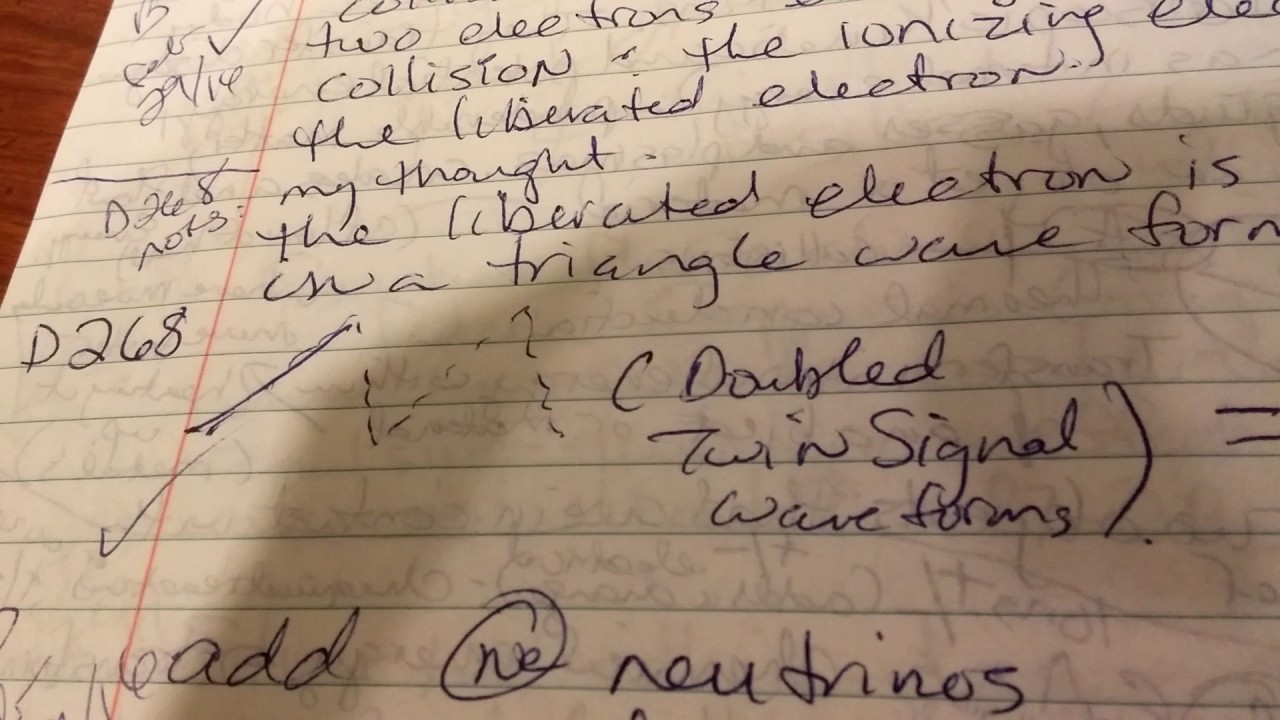 two electrons
collision : the ionizing
the liberated electron.
my thought.
D268 the liberated electron is
in a triangle wave form
D268
(Doubled
Twin Signal
wave forms). =
add ne neutrinos